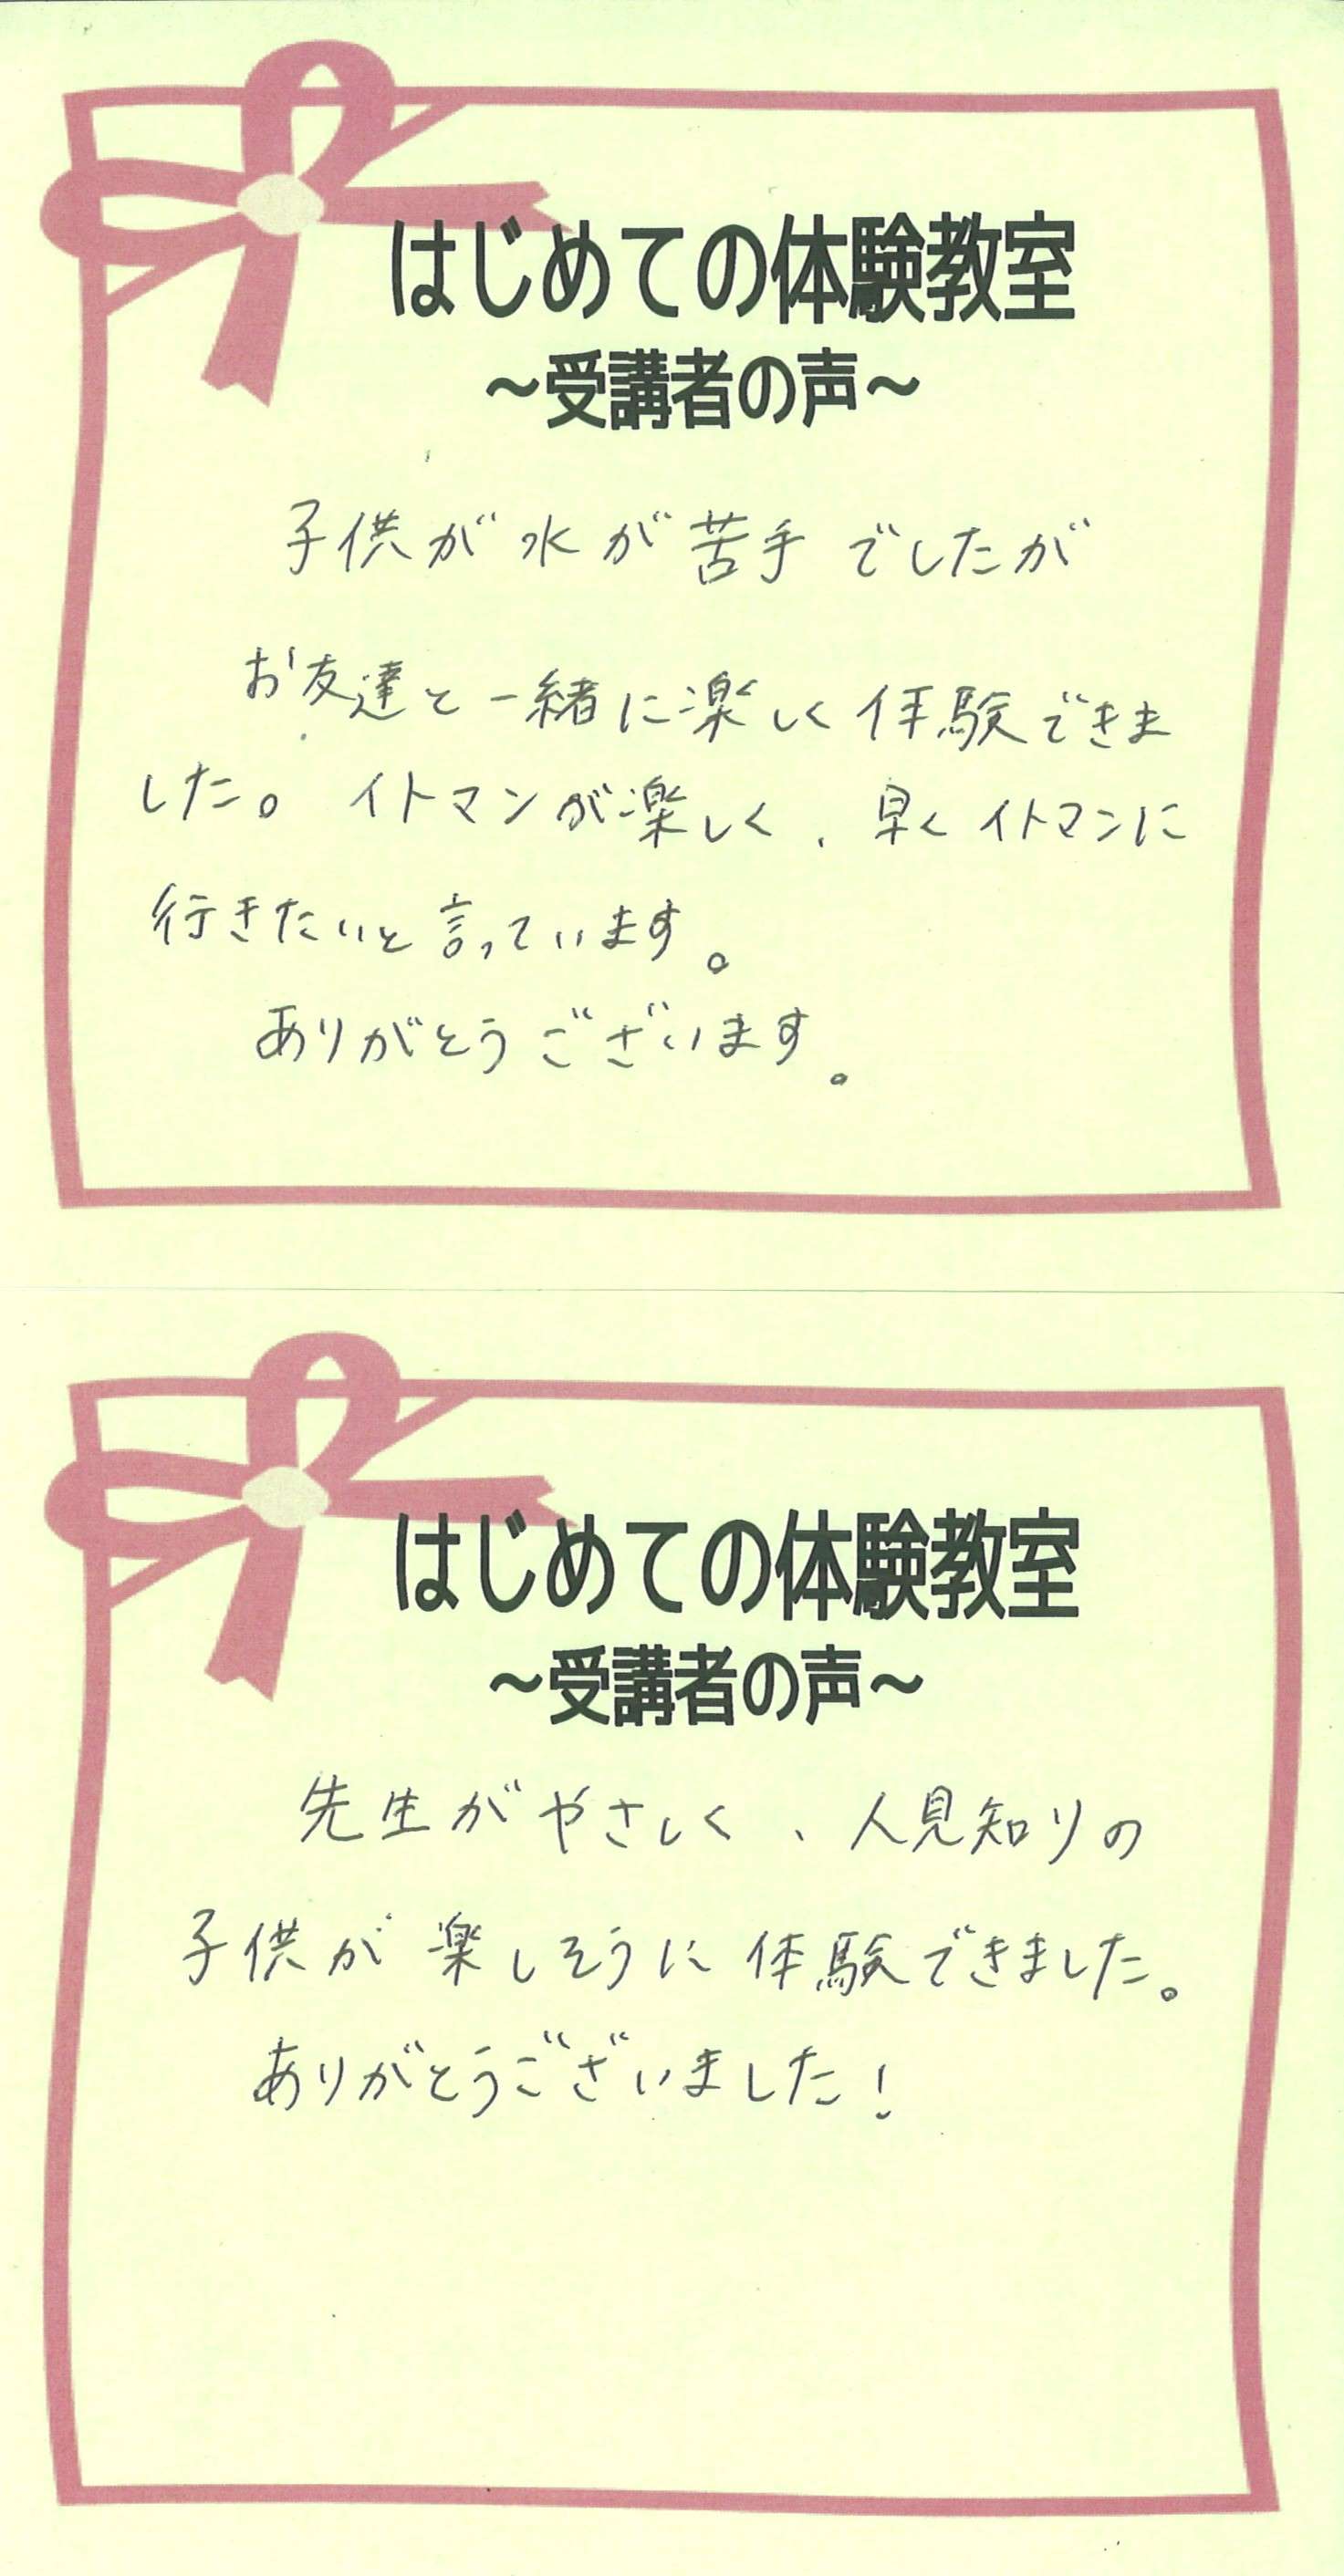 はじめての体験教室
～受講者の声～
子供が水が苦手でしたが
お友達と一緒に楽しく体験できま
した。イトマンが楽しく、早くイトマンに
行きたいと言っています。
ありがとうございます。
はじめての体験教室
～受講者の声～
先生がやさしく、人見知りの
子供が楽しそうに体験できました。
ありがとうございました!